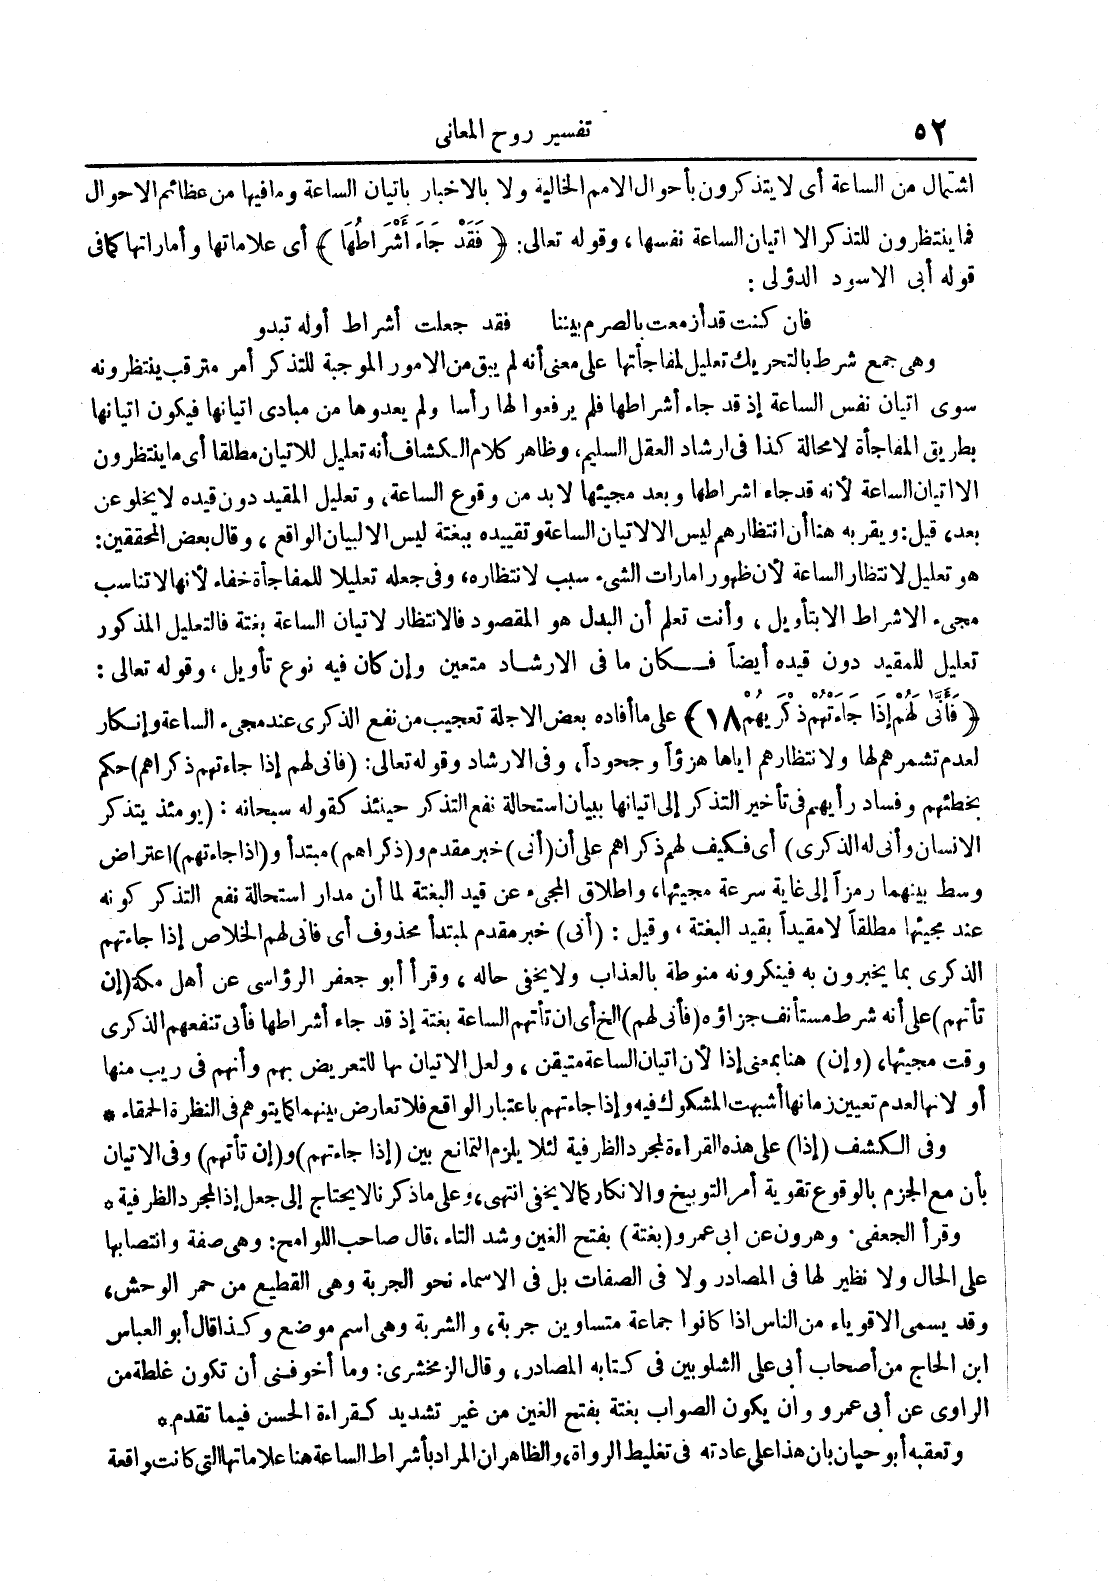 ٥٢
تفسير روح المعانى
اشتمال من الساعة أى لا يتذكرون بأحوال الامم الخالية ولا بالاخبار باتيان الساعة ومافيها من عظائم الاحوال
فما ينتظرون للتذكر الا اتيان الساعة نفسها، وقوله تعالى: ﴿ فَقَدْ جَاءَ أَشْرَاطُهَا ﴾ أى علاماتها وأماراتها كما فى
قوله أبى الاسود الدؤلى :
فان كنت قد أزمعت بالصرم بيننا فقد جعلت أشراط أوله تبدو
وهى جمع شرط بالتحريك تعليل لمفاجأتها على معنى أنه لم يبق من الامور الموجبة للتذكر أمر مترقب ينتظرونه
سوى اتيان نفس الساعة إذ قد جاء أشراطها فلم يرفعوا لها رأسا ولم يعدوها من مبادى اتيانها فيكون اتيانها
بطريق المفاجأة لا محالة كذا فى ارشاد العقل السليم، وظاهر كلام الكشاف أنه تعليل للاتيان مطلقا أى ما ينتظرون
الا اتيان الساعة لأنه قد جاء اشراطها وبعد مجيئها لا بد من وقوع الساعة، وتعليل المقيد دون قيده لا يخلو عن
بعد، قيل: ويقربه هنا أن انتظارهم ليس الا لاتيان الساعة وتقييده ببغتة ليس الا لبيان الواقع ، وقال بعض المحققين:
هو تعليل لانتظار الساعة لأن ظهور امارات الشىء سبب لانتظاره، وفى جعله تعليلا للمفاجأة خفاء لأنها لا تناسب
مجىء الاشراط الا بتأويل ، وأنت تعلم أن البدل هو المقصود فالانتظار لاتيان الساعة بغتة فالتعليل المذكور
تعليل للمقيد دون قيده أيضاً فكان ما فى الارشاد متعين وإن كان فيه نوع تأويل ، وقوله تعالى :
﴿ فَأَنَّى لَهُمْ إِذَا جَاءَتْهُمْ ذِكْرَيهُمْ ١٨ ﴾ على ما أفاده بعض الاجلة تعجيب من نفع الذكرى عند مجىء الساعة وإنكار
لعدم تشمرهم لها ولانتظارهم اياها هزؤاً وجحوداً، وفى الارشاد وقوله تعالى: (فانى لهم إذا جاءتهم ذكراهم) حكم
بخطئهم وفساد رأيهم فى تأخير التذكر إلى اتيانها ببيان استحالة نفع التذكر حينئذ كقوله سبحانه : (يومئذ يتذكر
الانسان وأنى له الذكرى) أى فكيف لهم ذكراهم على أن (أنى) خبر مقدم و(ذكراهم) مبتدأ و(اذا جاءتهم) اعتراض
وسط بينهما رمزاً إلى غاية سرعة مجيئها، واطلاق المجىء عن قيد البغتة لما أن مدار استحالة نفع التذكر كونه
عند مجيئها مطلقاً لا مقيداً بقيد البغتة ، وقيل : (أنى) خبر مقدم لمبتدأ محذوف أى فانى لهم الخلاص إذا جاءتهم
الذكرى بما يخبرون به فينكرونه منوطة بالعذاب ولا يخفى حاله ، وقرأ أبو جعفر الرؤاسى عن أهل مكة (إن
تأتهم) على أنه شرط مستأنف جزاؤه (فأنى لهم) الخ أى ان تأتهم الساعة بغتة إذ قد جاء أشراطها فأنى تنفعهم الذكرى
وقت مجيئها، (وإن) هنا بمعنى إذا لأن اتيان الساعة متيقن ، ولعل الاتيان بها للتعريض بهم وأنهم فى ريب منها
أو لانها لعدم تعيين زمانها أشبهت المشكوك فيه وإذا جاءتهم باعتبار الواقع فلا تعارض بينهما كما يتوهم فى النظرة الحمقاء *
وفى الكشف (إذا) على هذه القراءة لمجرد الظرفية لئلا يلزم التمانع بين (إذا جاءتهم) و(إن تأتهم) وفى الاتيان
بأن مع الجزم بالوقوع تقوية أمر التوبيخ والانكار كما لا يخفى انتهى، وعلى ما ذكرنا لا يحتاج إلى جعل إذا لمجرد الظرفية *
وقرأ الجعفى. وهرون عن ابى عمرو (بغتة) بفتح الغين وشد التاء، قال صاحب اللوامح: وهى صفة وانتصابها
على الحال ولا نظير لها فى المصادر ولا فى الصفات بل فى الاسماء نحو الجربة وهى القطيع من حمر الوحش،
وقد يسمى الاقوياء من الناس اذا كانوا جماعة متساوين جربة، والشربة وهى اسم موضع وكذا قال أبو العباس
ابن الحاج من أصحاب أبى على الشلوبين فى كتابه المصادر، وقال الزمخشرى: وما أخوفنى أن تكون غلطة من
الراوى عن أبى عمرو وان يكون الصواب بغتة بفتح الغين من غير تشديد كقراءة الحسن فيما تقدم *
وتعقبه أبو حيان بان هذا على عادته فى تغليط الرواة، والظاهر ان المراد بأشراط الساعة هنا علاماتها التى كانت واقعة